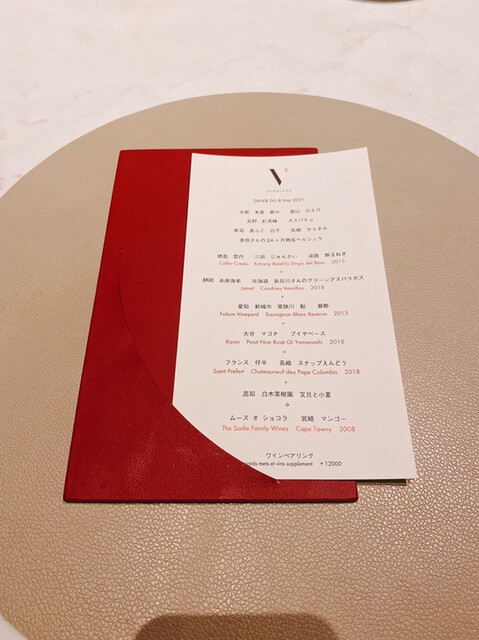 V
DINER DU 8 Mai 2021
京都 米富 富山 白えび
長野 紅美峰 ガスパチョ
新潟 真ふぐ 白子 長崎 からすみ
多田さんの24ヶ月熟成ペルシュウ
徳島 雲丹 三田 じゅんさい 淡路 新玉ねぎ
Celler Credo Estrany Karol.lo Vinya del Bons 2015
静岡 赤座海老 北海道 長谷川さんのグリーンアスパラガス
Jamet Condrieu Vernillon 2018
愛知 新城市 寒狭川 鮎 蓼酢
Folium Vineyard Sauvignon Blanc Reserve 2013
大分 マゴチ ブイヤベース
Kisvin Pinot Noir Rosé GI Yamanashi 2018
フランス 仔羊 長崎 スナップえんどう
Saint Prefert Chateauneuf des Pape Colombis 2018
高知 白木果樹園 文旦と小夏
ムース オ ショコラ 宮崎 マンゴー
The Sadie Family Wines Cape Tawny 2008
ワインペアリング
mets et vins supplement +12000